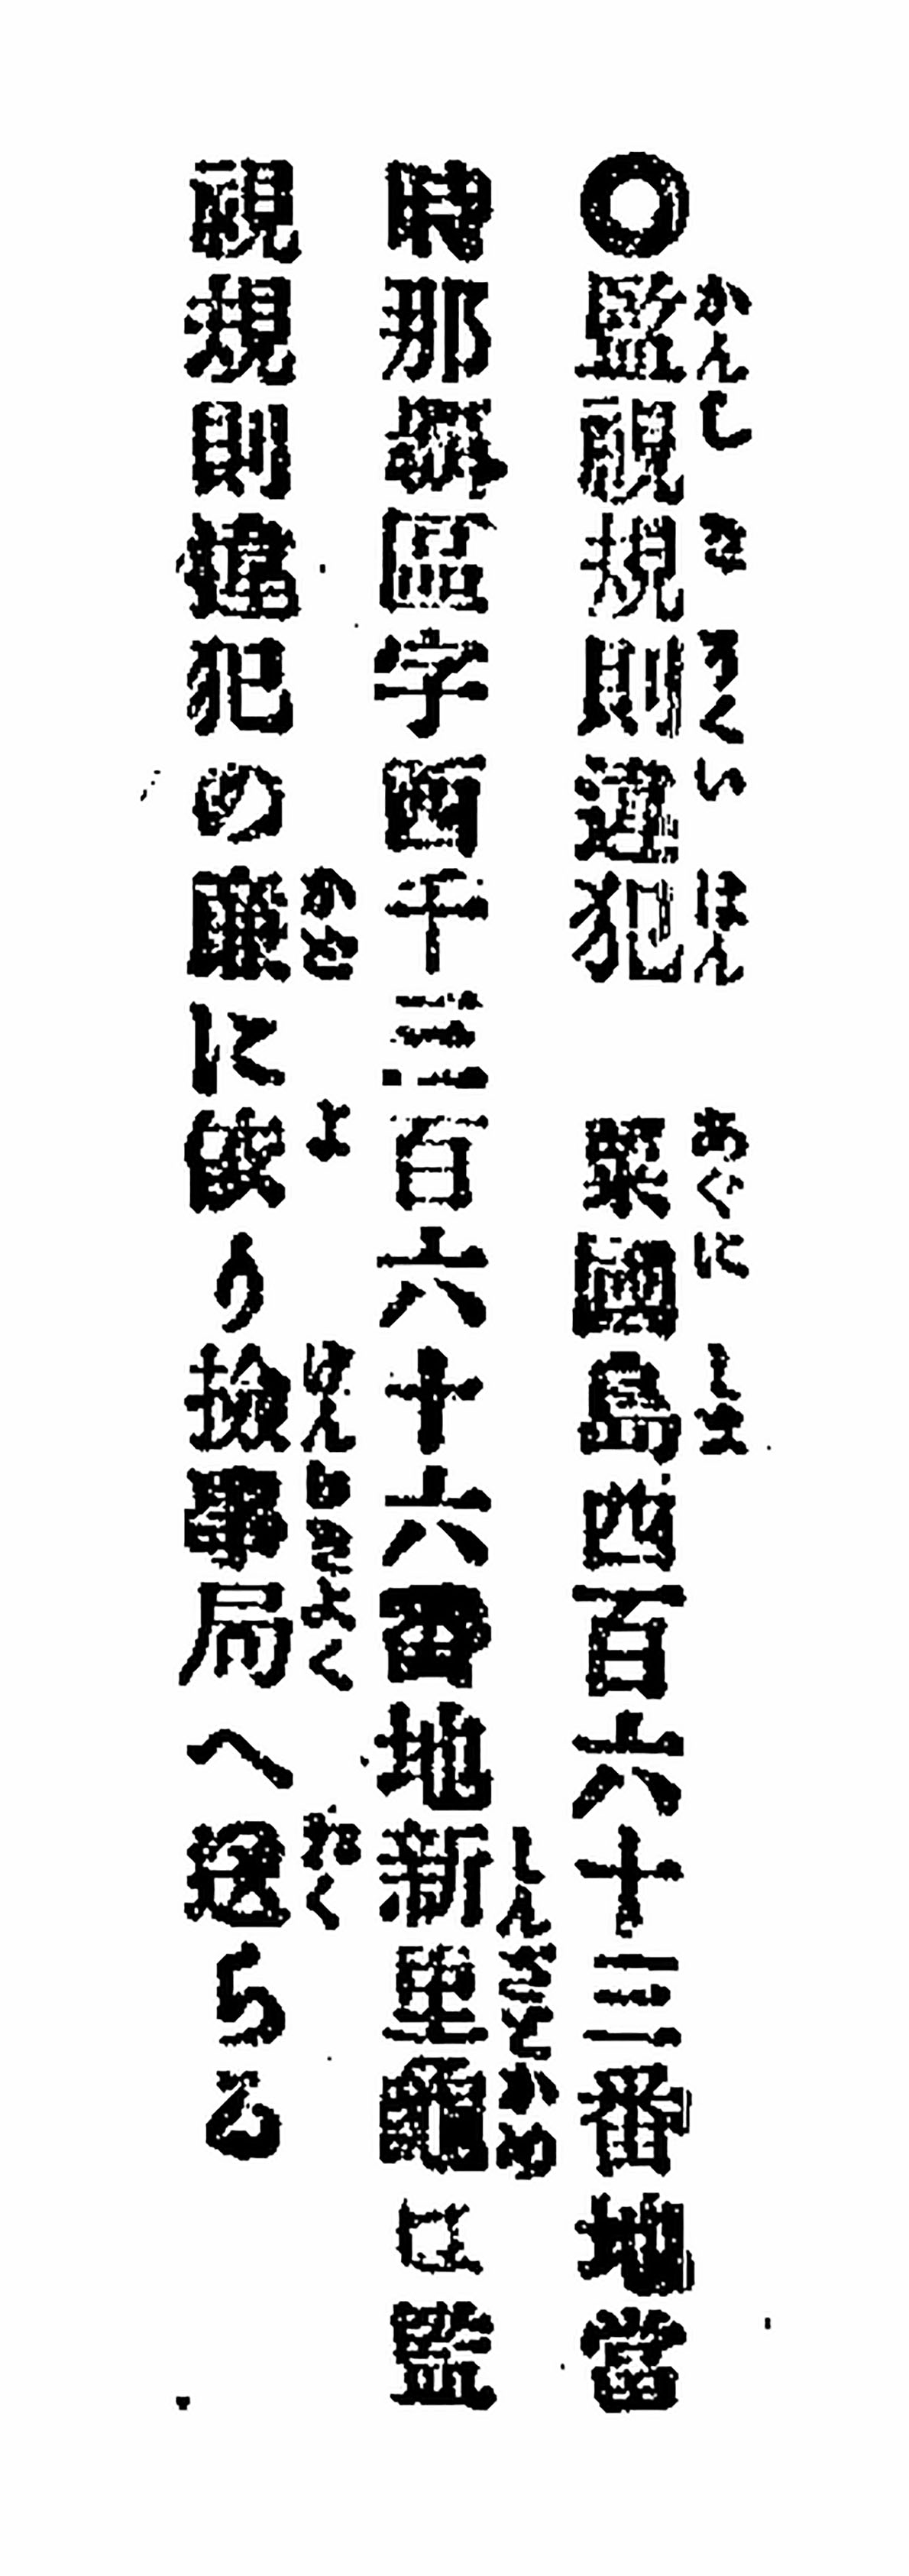 〇監視規則違犯　粟國島四百六十三番地當
時那覇區字西千三百六十六番地新里龜は監
視規則違犯の廉に依り撿事局へ送らる